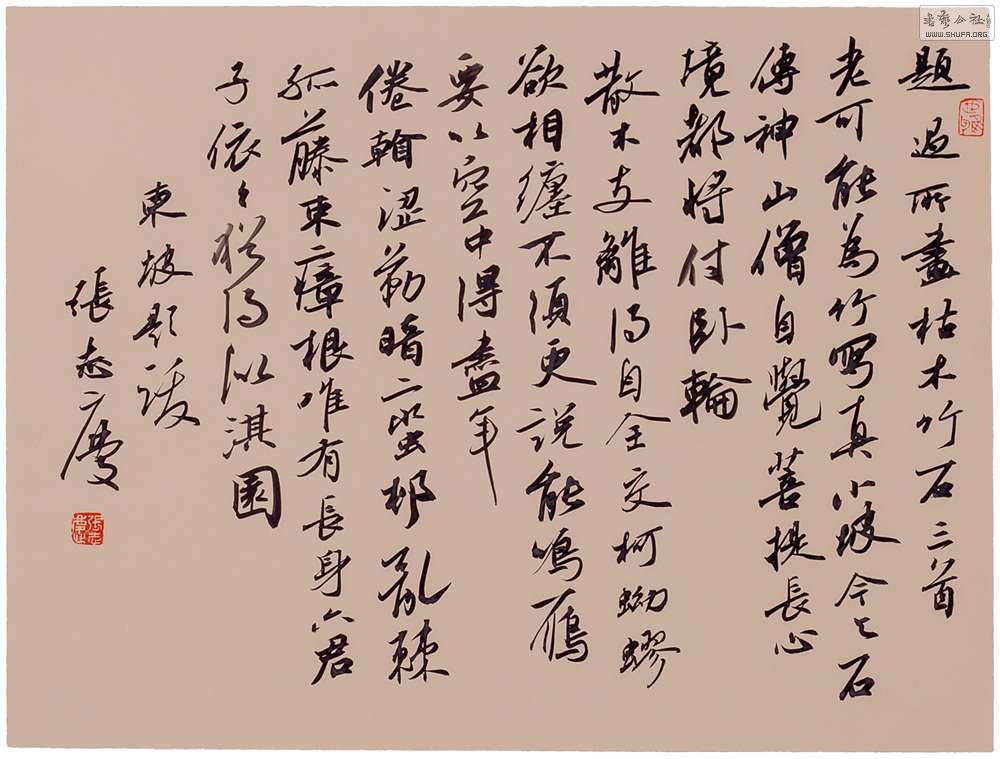 書藝公社
WWW.SHUFA.ORG
題過所畫枯木竹石三首
老可能為竹寫真小坡今与石
傳神山僧自覺菩提長心
境都將付臥輪
散木支離得自全交柯蚴蟉
欲相纏不須更說能鳴雁
要以空中得盡年
倦翰澀勒暗蠻邨亂棘
孤藤束瘴根唯有長身六君
子依々猶得似淇園
東坡題跋
張志慶